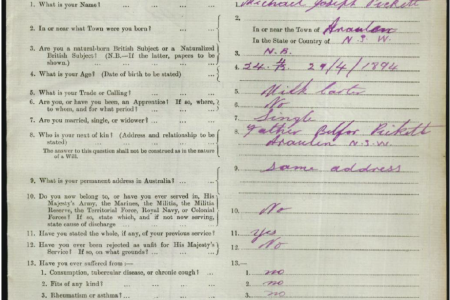 1. What is your Name? ... 1. Michael Joseph Pickett
2. In or near what Town were you born? ... 2. In or near the Town of
In the State or Country of N.S.W.
3. Are you a natural-born British Subject or a Naturalized
British Subject? (N.B.—If the latter, papers to be
shown.) 3. N.B.
4. What is your Age? (Date of birth to be stated) ... 4. 29/4/1894
5. What is your Trade or Calling? ... 5. Milk Carter
6. Are you, or have you been, an Apprentice? If so, where,
to whom, and for what period? 6. No
7. Are you married, single, or widower? 7. Single
8. Who is your next of kin? (Address and relationship to be
stated) 8. Father Pickett
N.S.W.
The answer to this question shall not be construed as in the nature
of a Will.
9. What is your permanent address in Australia? 9. same address
10. Do you now belong to, or have you ever served in, His
Majesty's Army, the Marines, the Militia, the Militia
Reserve, the Territorial Force, Royal Navy, or Colonial
Forces? If so, state which, and if not now serving,
state cause of discharge 10. No
11. Have you stated the whole, if any, of your previous service? 11. yes
12. Have you ever been rejected as unfit for His Majesty's
Service? If so, on what grounds? 12. No
13. Have you ever suffered from:— 13.—
1. Consumption, tubercular disease, or chronic cough? 1. no
2. Fits of any kind? 2. no
3. Rheumatism or asthma? 3. no